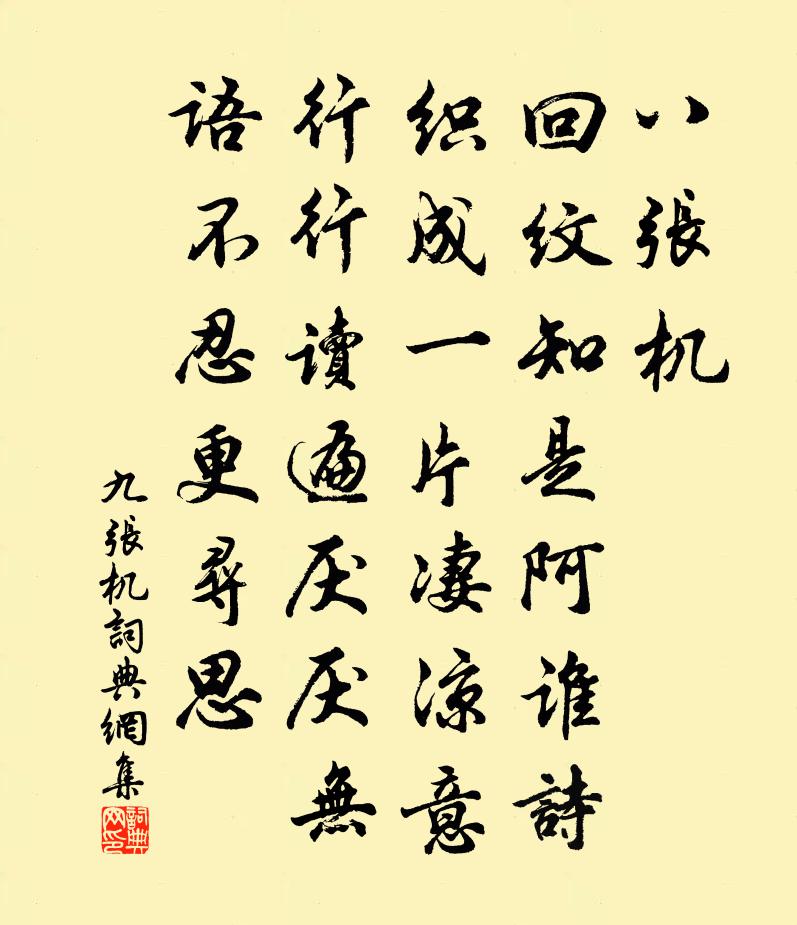 八張机
回纹知是阿谁詩
织成一片凄凉意
行行讀遍厌厌無
语不忍更尋思
九張机詞典網集
詞典网印